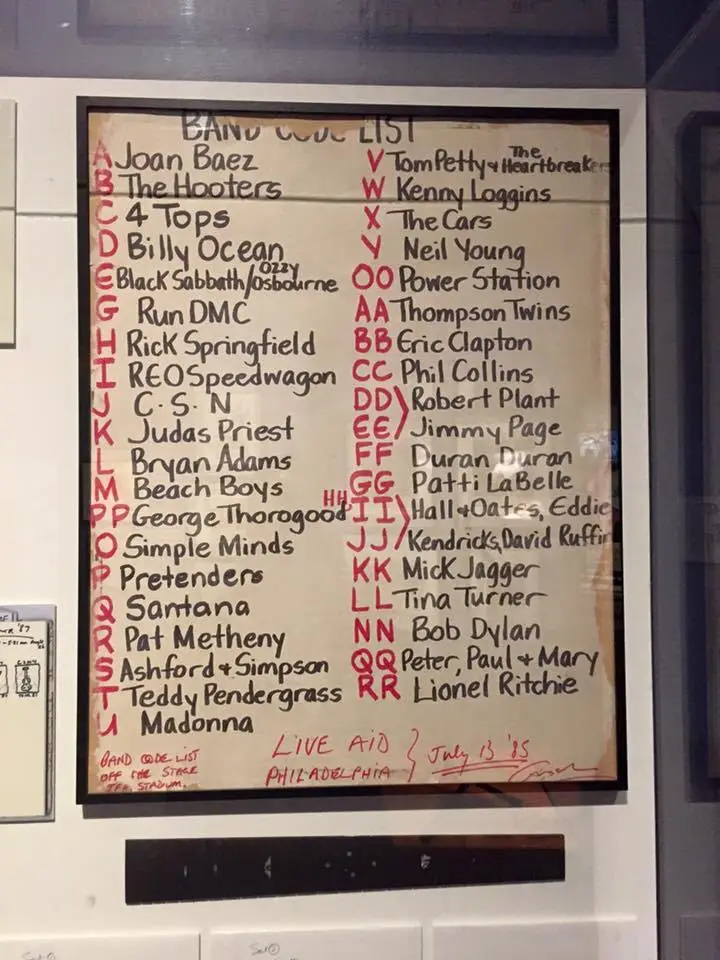 BAND CODE LIST
A Joan Baez
B The Hooters
C 4 Tops
D Billy Ocean
E Black Sabbath/Ozzy Osbourne
G Run DMC
H Rick Springfield
I REO Speedwagon
J C.S.N
K Judas Priest
L Bryan Adams
M Beach Boys
PP George Thorogood
O Simple Minds
P Pretenders
Q Santana
R Pat Metheny
S Ashford + Simpson
T Teddy Pendergrass
U Madonna
V Tom Petty + The Heartbreakers
W Kenny Loggins
X The Cars
Y Neil Young
OO Power Station
AA Thompson Twins
BB Eric Clapton
CC Phil Collins
DD Robert Plant
EE Jimmy Page
FF Duran Duran
GG Patti LaBelle
HH II Hall + Oates, Eddie
JJ Kendricks, David Ruffin
KK Mick Jagger
LL Tina Turner
NN Bob Dylan
QQ Peter, Paul + Mary
RR Lionel Ritchie
BAND CODE LIST
OFF THE STAGE
STADIUM.
LIVE AID
PHILADELPHIA
July 13 '85